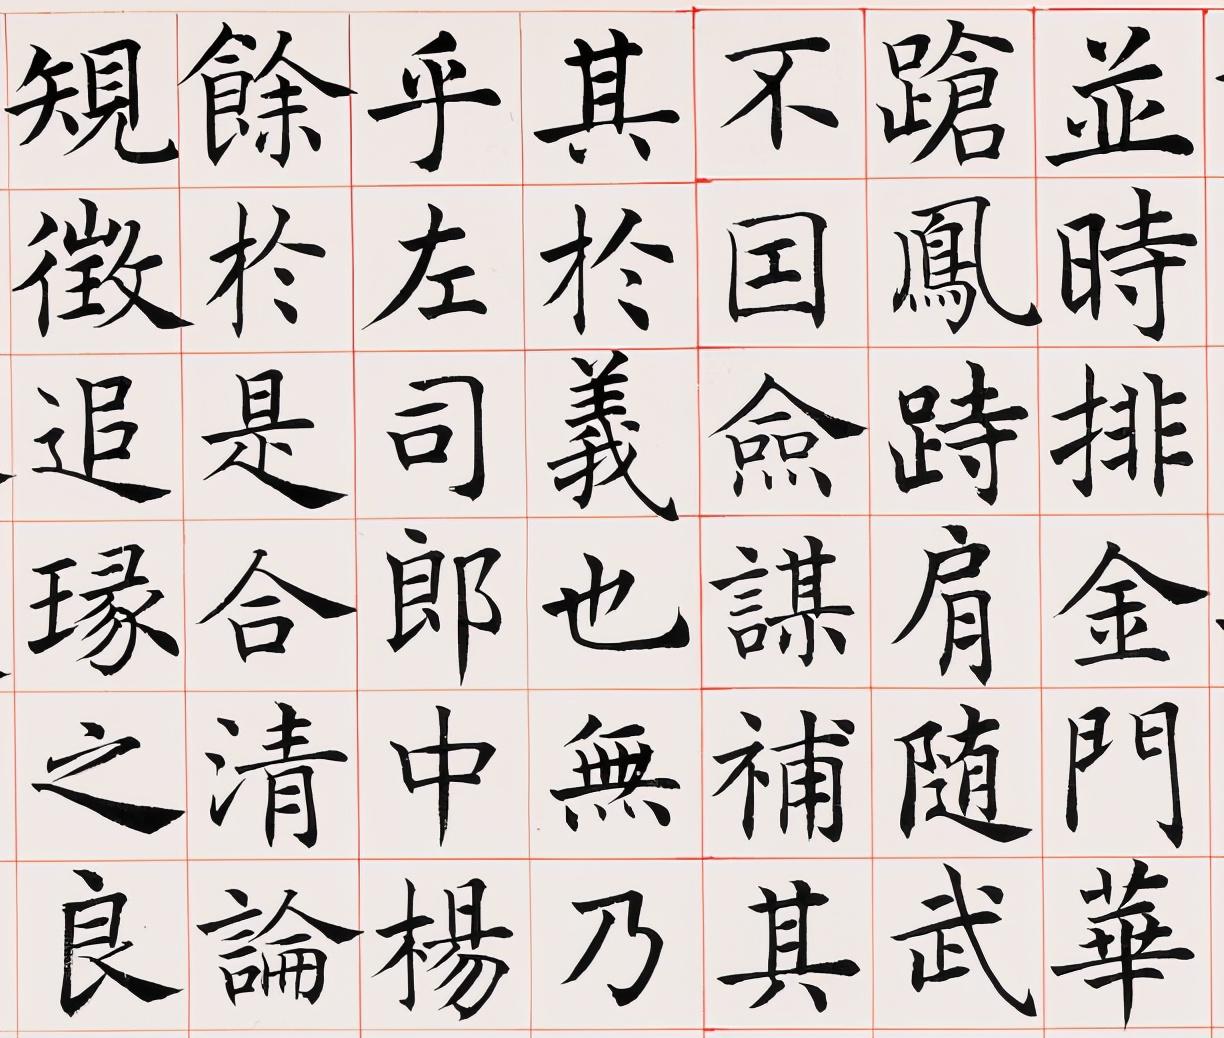 並時排金門華
蹌鳳跱肩随武
不囯僉謀補其
其於義也無乃
乎左司郎中楊
餘於是合清論
規徵追瑑之良